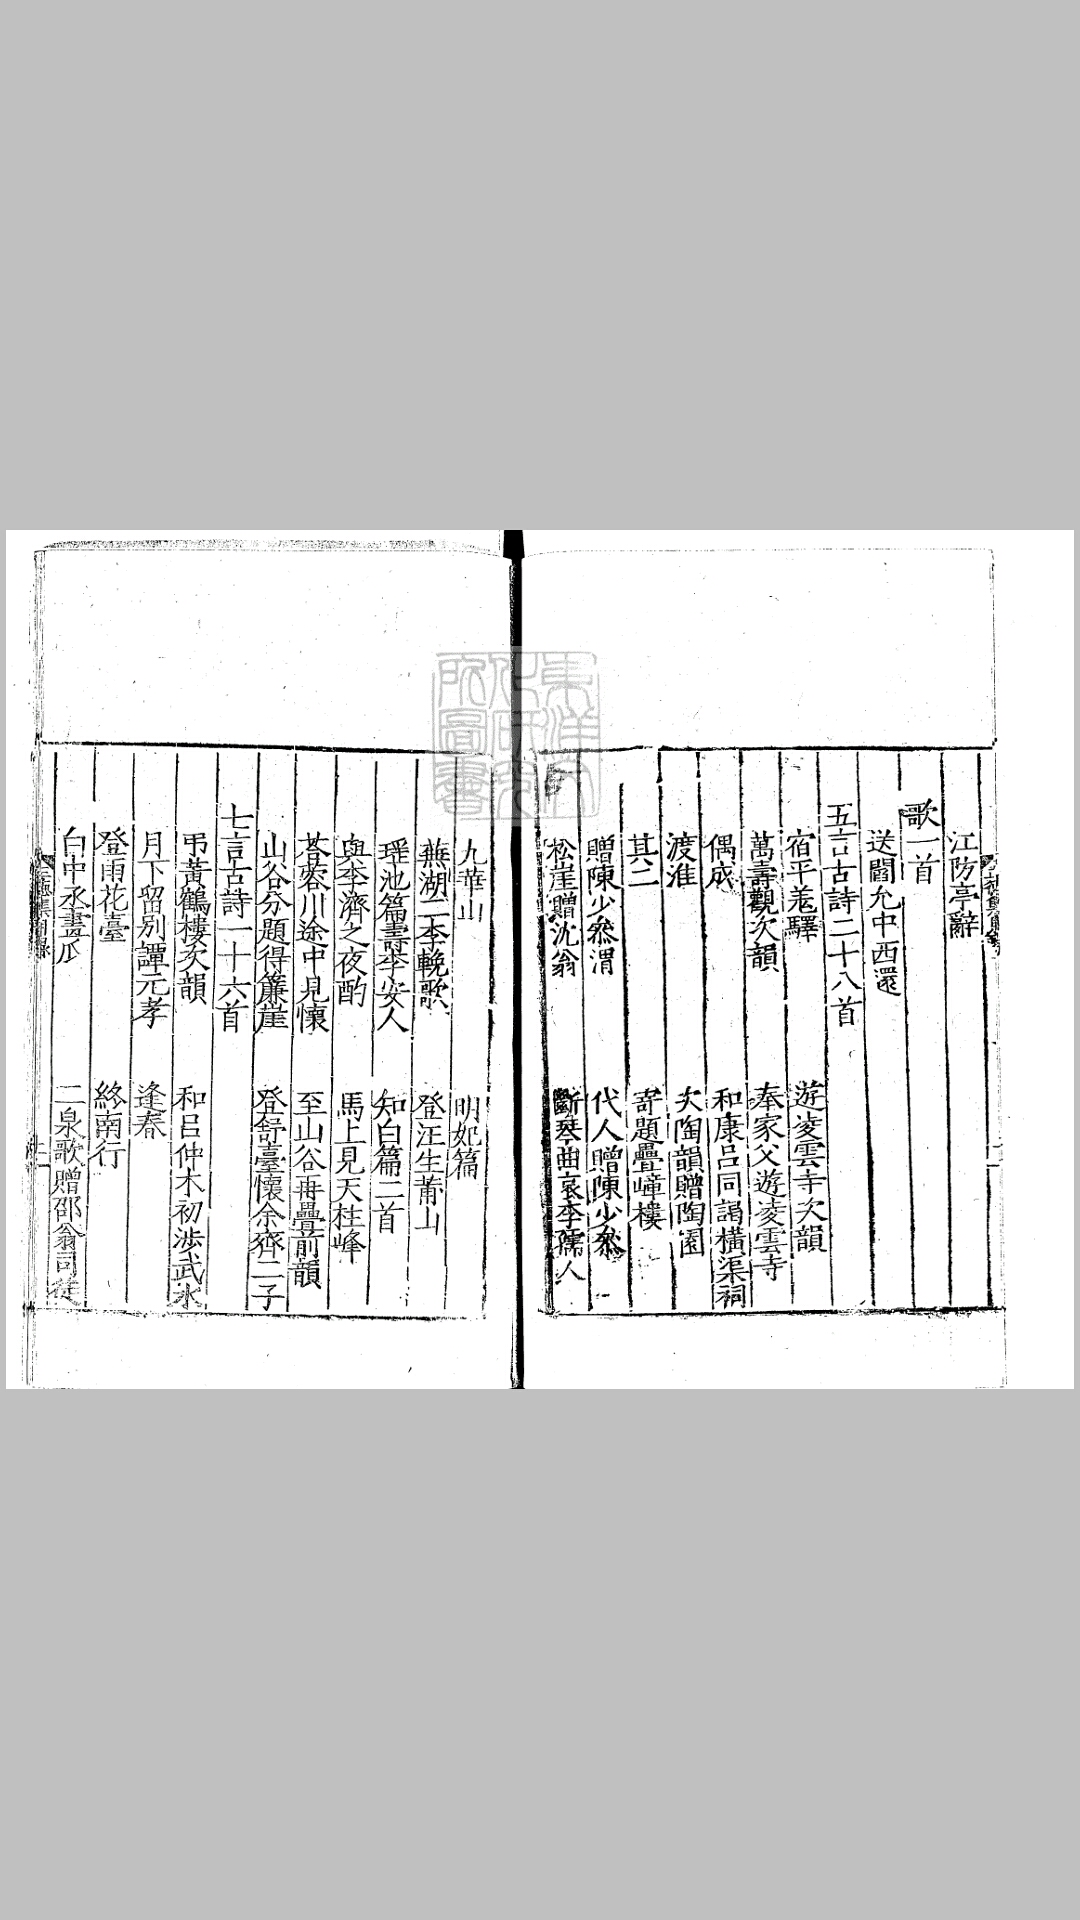 江防亭辭
歌一首
送閻允中西還
五言古詩二十八首
宿平羗驛　遊凌雲寺次韻
萬壽觀次韻　奉家父遊凌雲寺
偶成　和康呂同謁橫渠祠
渡淮　次陶韻贈陶園
其二　寄題疊嶂樓
贈陳少叅渭　代人贈陳少叅
松崖贈沈翁　斷琴曲哀李孺人
九華山　明妃篇
蕪湖二李輓歌　登汪生莆山
瑶池篇壽李安人　知白篇二首
與李濟之夜酌　馬上見天柱峰
荅蓉川途中見懷　至山谷再疊前韻
山谷分題得簾崖　登舒臺懷余齊二子
七言古詩一十六首
弔黃鶴樓次韻　和呂仲木初涉武水
月下留别譚元孝　逢春
登雨花臺　終南行
白中丞畫瓜　二泉歌贈邵翁司徒